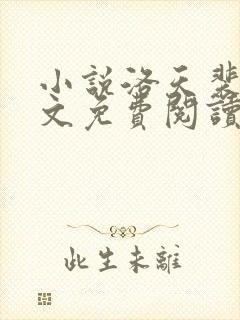 小說洛天裴
文免費閱讀
此生未離